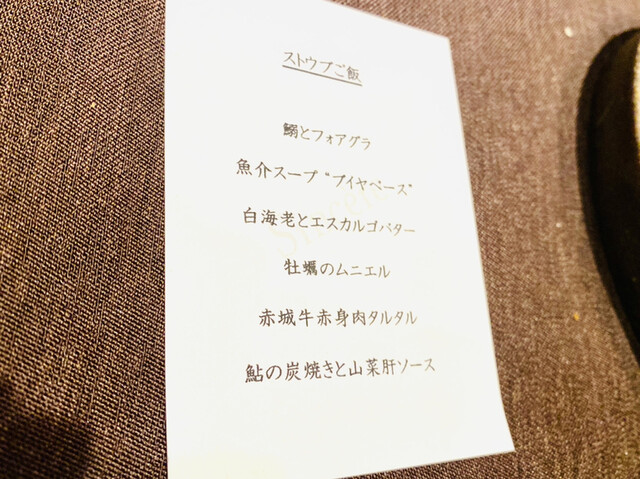 ストウブご飯
鰯とフォアグラ
魚介スープ “ブイヤベース”
白海老とエスカルゴバター
牡蠣のムニエル
赤城牛赤身肉タルタル
鮎の炭焼きと山菜肝ソース